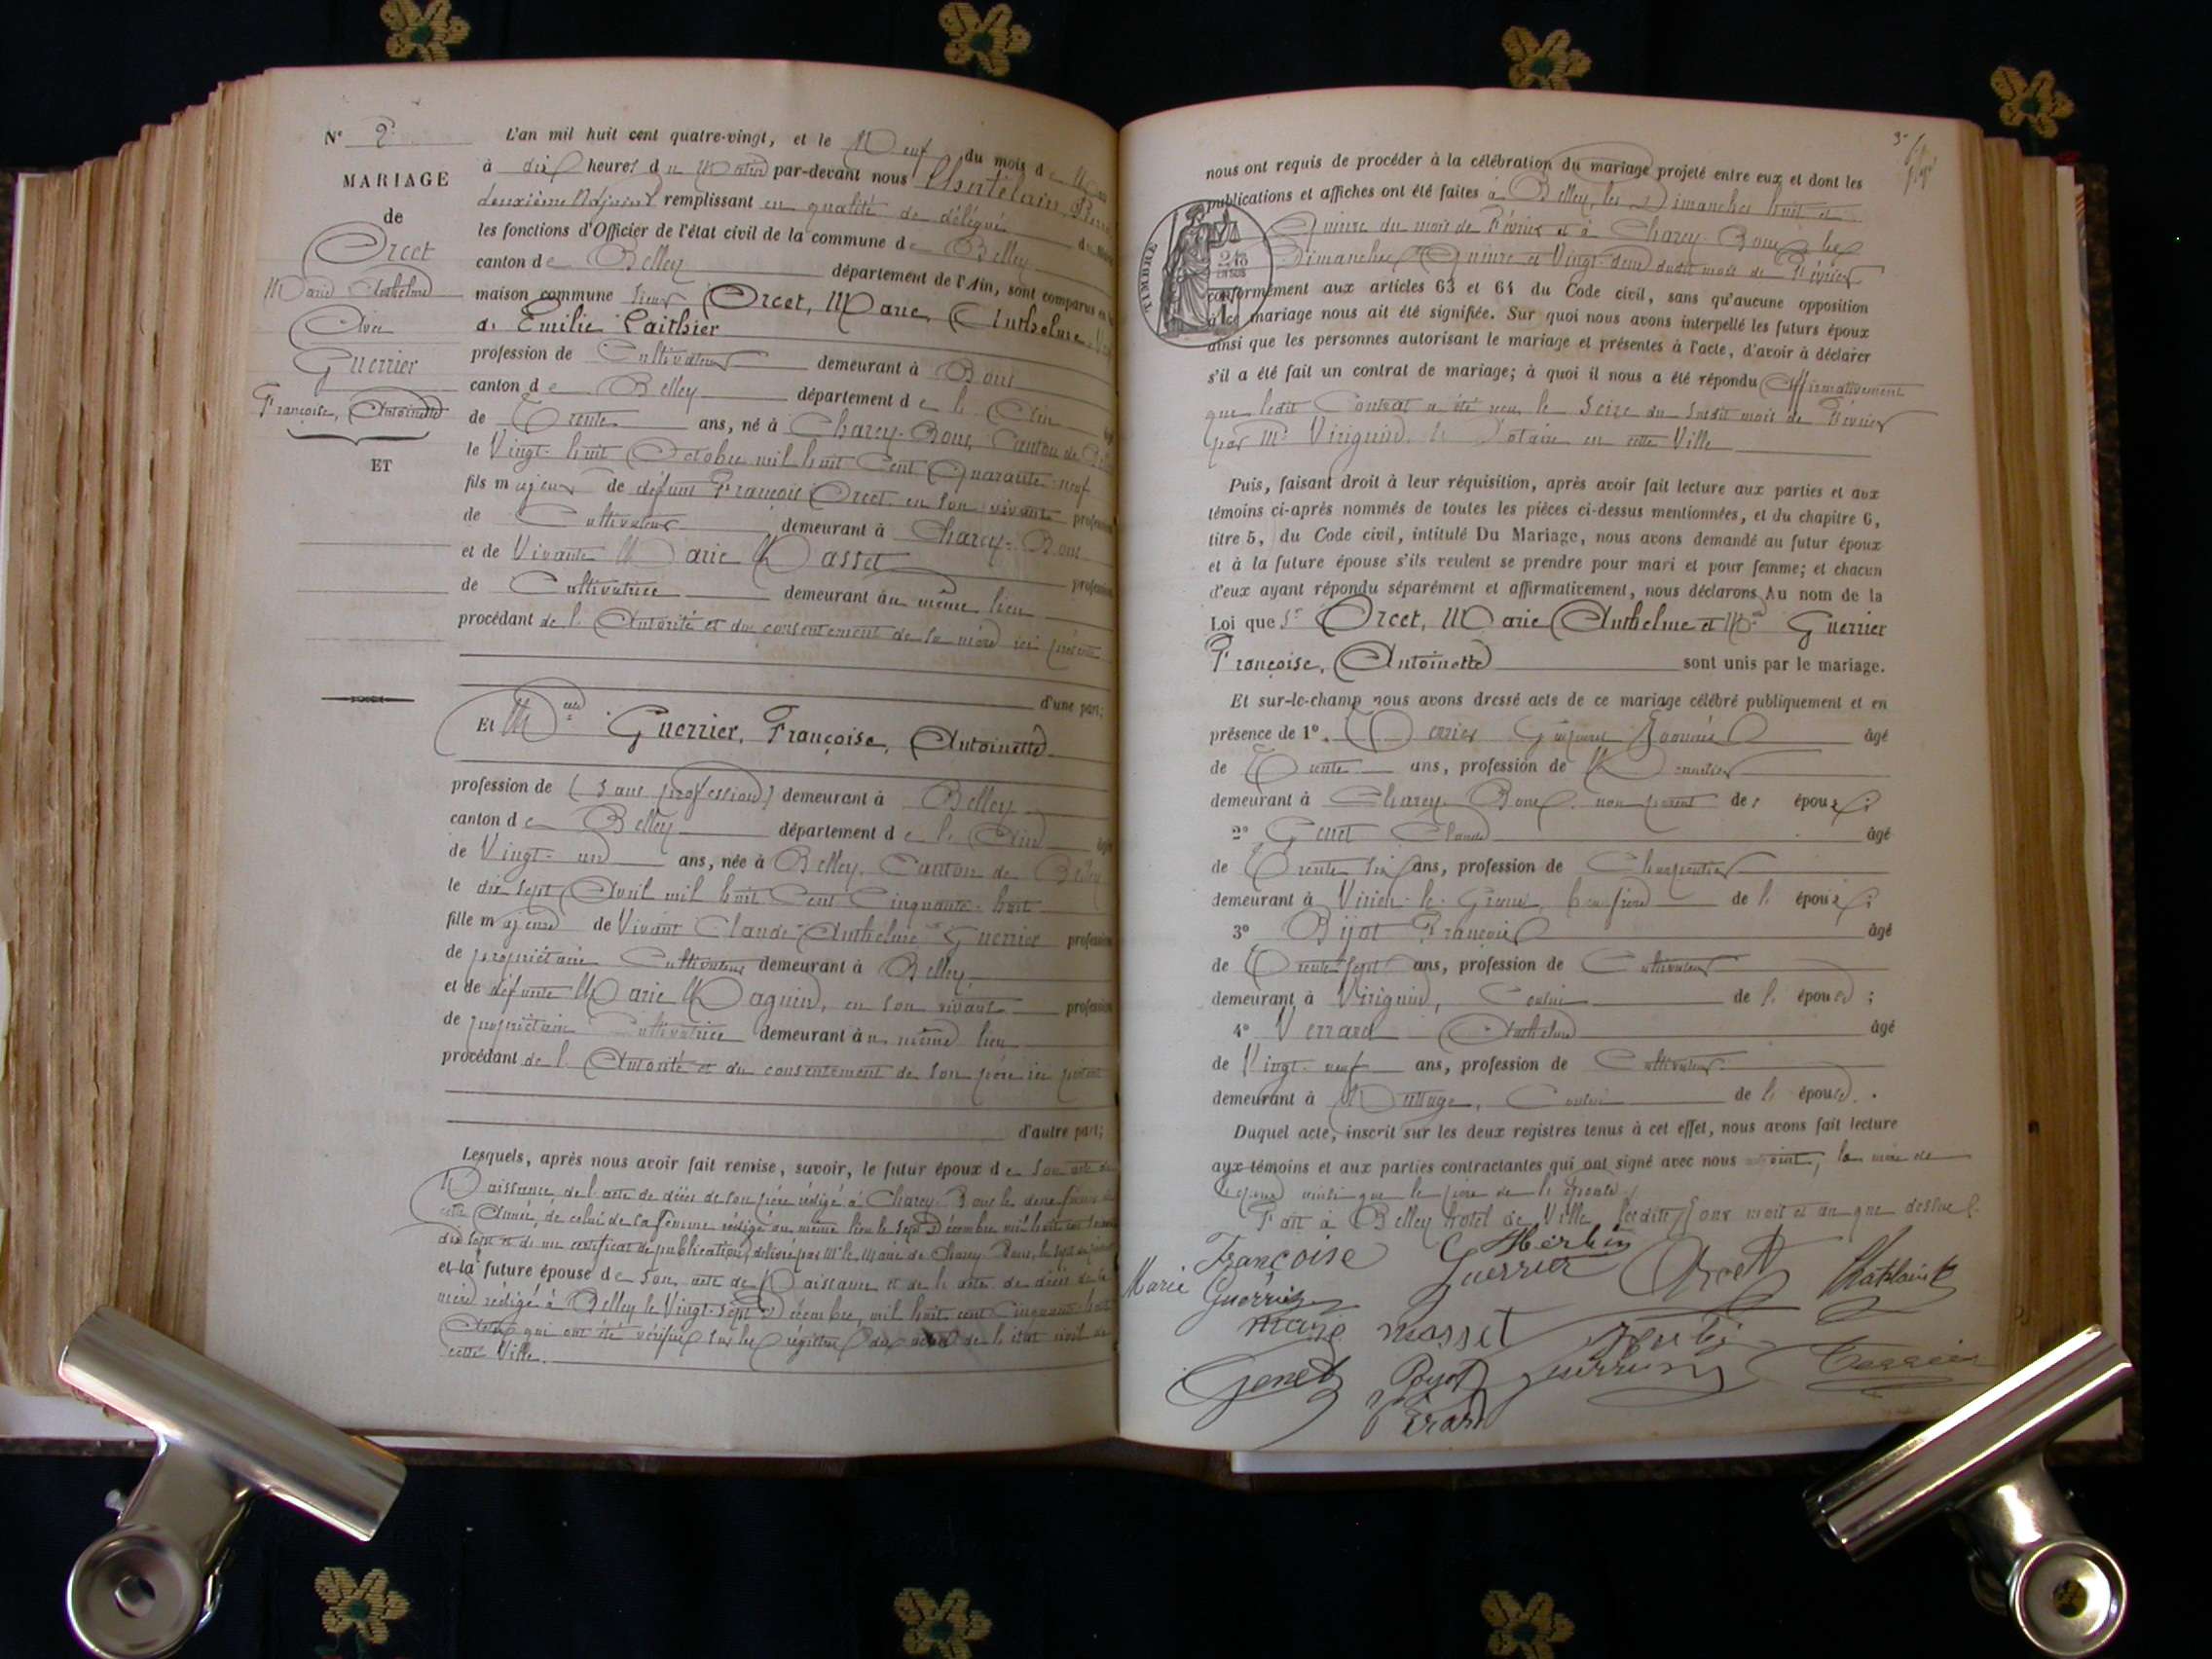 N° 2
MARIAGE
de
Orcet
Marie Anthelme
Avec
Guerrier
Françoise, Antoinette
ET
L'an mil huit cent quatre-vingt, et le Neuf du mois de
à dix heures du Matin par-devant nous Chatelain
deuxième Adjoint remplissant en qualité de délégué
les fonctions d'Officier de l'état civil de la commune de Belley
canton de Belley département de l'Ain, sont comparus en la
maison commune sieur Orcet, Marie, Anthelme
de Emilie Laithier
profession de Cultivateur demeurant à Bons
canton de Belley département de l'Ain
de Trente ans, né à Chazey-Bons, Canton de
le Vingt-huit Octobre mil huit Cent Quarante-neuf
fils majeur de défunt François Orcet en son vivant profession
de Cultivateur demeurant à Chazey-Bons
et de Vivante Marie Masset profession
de Cultivatrice demeurant au même lieu
procédant de l'Autorité et du consentement de sa mère ici présente
d'une part;
Et Melle Guerrier, Françoise, Antoinette
profession de (sans profession) demeurant à Belley
canton de Belley département de l'Ain âgée
de Vingt-un ans, née à Belley, Canton de Belley
le dix sept Avril mil huit Cent Cinquante-huit
fille majeure de Vivant Claude-Anthelme Guerrier profession
de propriétaire Cultivateur demeurant à Belley,
et de défunte Marie Maguin, en son vivant profession
de propriétaire Cultivatrice demeurant au même lieu
procédant de l'Autorité et du consentement de son père ici présent
d'autre part;
Lesquels, après nous avoir fait remise, savoir, le futur époux de son acte de
Naissance, de l'acte de décès de son père rédigé à Chazey-Bons le
cette Année, de celui de sa femme rédigé au même lieu le sept Décembre mil huit cent
dix sept et de un certificat de publication, délivré par Mr le Maire de Chazey-Bons, le
et la future épouse de son acte de Naissance et de l'acte de décès de sa
mère rédigé à Belley le Vingt-sept Décembre, mil huit cent Cinquante-huit
Actes qui ont été vérifiés sur les régistres des actes de l'état civil de
cette Ville.
3
nous ont requis de procéder à la célébration du mariage projeté entre eux et dont les
publications et affiches ont été faites à Belley, les Dimanches huit et
Quinze du mois de Février et à Chazey-Bons les
Dimanches Quinze et Vingt-deux dudit mois de Février
TIMBRE
conformément aux articles 63 et 64 du Code civil, sans qu'aucune opposition
à ce mariage nous ait été signifiée. Sur quoi nous avons interpellé les futurs époux
ainsi que les personnes autorisant le mariage et présentes à l'acte, d'avoir à déclarer
s'il a été fait un contrat de mariage; à quoi il nous a été répondu Affirmativement
que ledit Contrat a été reçu le Seize du susdit mois de Février
par Me Virignin Notaire en cette Ville
Puis, faisant droit à leur réquisition, après avoir fait lecture aux parties et aux
témoins ci-après nommés de toutes les pièces ci-dessus mentionnées, et du chapitre 6,
titre 5, du Code civil, intitulé Du Mariage, nous avons demandé au futur époux
et à la future épouse s'ils veulent se prendre pour mari et pour femme; et chacun
d'eux ayant répondu séparément et affirmativement, nous déclarons Au nom de la
Loi que Sr Orcet, Marie Anthelme et Melle Guerrier
Françoise, Antoinette sont unis par le mariage.
Et sur-le-champ nous avons dressé acte de ce mariage célébré publiquement et en
présence de 1° âgé
de Trente ans, profession de
demeurant à Chazey-Bons, non parent des époux;
2° Genet Claude âgé
de Trente six ans, profession de Charpentier
demeurant à Virieu-le-Grand, beau frère de l'époux;
3° Bijot François âgé
de Trente sept ans, profession de Cultivateur
demeurant à Virignin, Cousin de l'épouse;
4° Verrard Anthelme âgé
de Vingt-neuf ans, profession de Cultivateur
demeurant à Nattage, Cousin de l'épouse.
Duquel acte, inscrit sur les deux registres tenus à cet effet, nous avons fait lecture
aux témoins et aux parties contractantes qui ont signé avec nous la mère de
l'époux ainsi que le père de l'épouse.
Fait à Belley hotel de Ville lesdits jour mois et an que dessus.
Françoise Guerrier Orcet Chatelain
Marie Guerrier
marie masset
Genet Guerrier